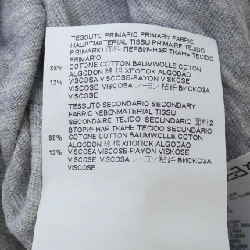 TESSUTO PRIMARIO PRIMARY FABRIC
HAUPTMATERIAL TISSU PRIMAIRE TEJIDO
PRIMARIO
COTONE COTTON BAUMWOLLE COTON
ALGODON 綿 棉 ХЛОПОК ALGODÃO
12% VISCOSA VISCOSE RAYON VISCOSA
VISCOSE
TESSUTO SECONDARIO SECONDARY
FABRIC NEBENMATERIAL TISSU
SECONDAIRE TEJIDO SECUNDARIO
88% COTONE COTTON BAUMWOLLE COTON
ALGODON 綿 棉 ХЛОПОК ALGODÃO
12% VISCOSA VISCOSE RAYON VISCOSA
VISCOSE VISCOSA レーヨン 粘纤 ВИСКОЗА
VISCOSE